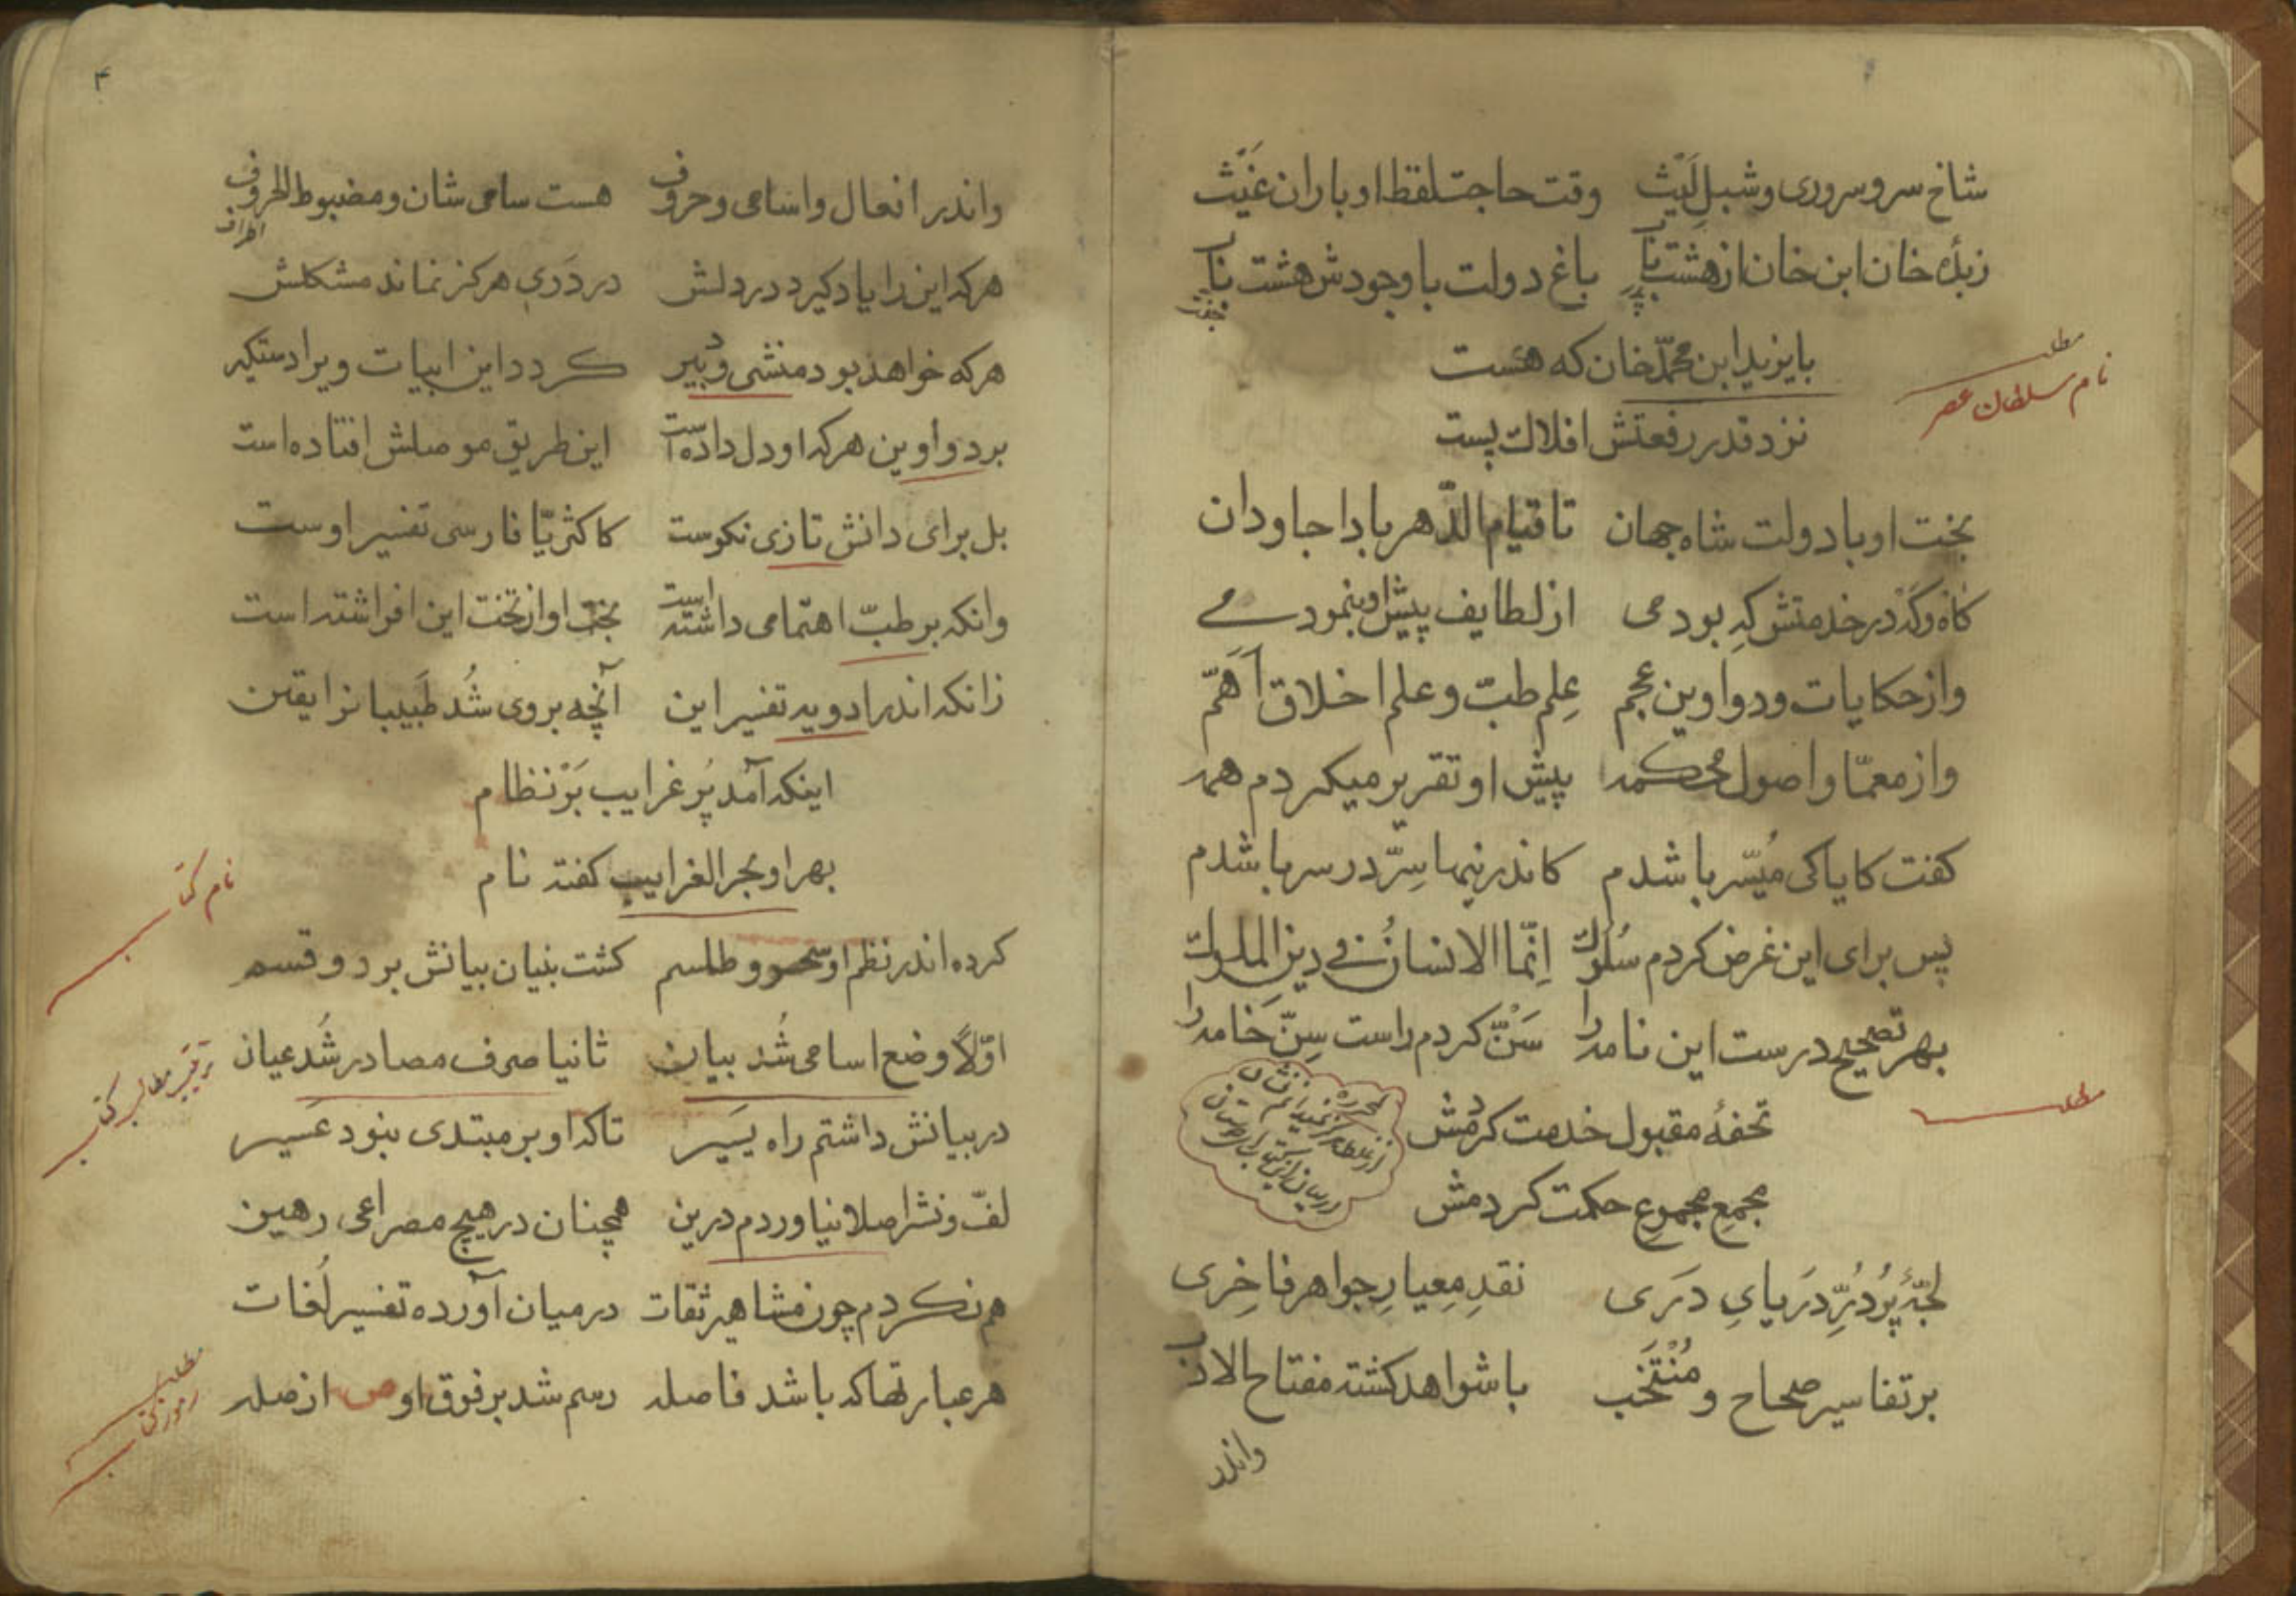 شاخ سرو سروری و شبلِ لَیْث وقت حاجت لقط او باران غَیْث
زبدۀ خان ابن خان از هشت باب باغ دولت با وجودش هشت باب
جفت
بایزید ابن محمّد خان که هست
نزد قدر رفعتش افلاک پست
مطلب
نام سلطان عصر
بخت او با دولت شاه جهان تا قیام الدّهر بادا جاودان
کاه وکَه در خدمتش که بودمی از لطایف پیش او بنمودمی
واز حکایات و دواوین عجم عِلم طبّ و علم اخلاق اَهَمّ
واز معمّا و اصول محکمه پیش او تقریر میکردم همه
کفت کایا کی مُیَسّر باشدم کاندرینها سِرّ در سر باشدم
پس برای این غرض کردم سُلوک اِنّما الانسانُ فی دین الملوک
بهر تصحیح درست این نامه را سَنّ کردم راست سِنّ خَامه را
مطلب
تحفۀ مقبول خدمت کردمش
مجمعِ مجموعِ حکمت کردمش
لجّۀ پُر دُرِّ دَریایِ دَری نقدِ مِعیارِ جواهر فاخِری
بر تفاسیر صحاح و مُنْتَخَب با شواهد کشته مفتاح الادب
واندر
۴
واندر افعال واسامی وحروف هست سامی شان ومضبوط الحروف
اطراف
هرکه این را یاد کیرد در دلش در دَری هرکز نماند مشکلش
هرکه خواهد بود منشی ودبیر کردد این ابیات ویرا دستکیر
بر دواوین هرکه او دل داده است این طریق موصلش افتاده است
بل برای دانش تازی نکوست کاکثریّا فارسی تفسیر اوست
وانکه بر طبّ اهتمامی داشته است بخت او از تخت این افراشته است
زانکه اندر ادویه تفسیر این آنچه بروی شُد طَبیبانرا یقین
اینکه آمد پُر غرایب بَرْ نظام
بهر او بحر الغرایب کفته نام
نام کتاب
کرده اند نظم او سحر و طلسم کشت بنیان بیانش بر دو قسم
اوّلاً وضع اسامی شُد بیان ثانیا صرف مصادر شُد عیان
ترتیب مطالب کتاب
در بیانش داشتم راه یَسیر تا که او بر مبتدی نبود عَسیر
لفّ ونشر اصلا نیاوردم درین همچنان در هیچ مصراعی رهین
هم نکردم چون مشاهیر ثقات در میان آورده تفسیر لُغات
هر عبارتها که باشد فاصله رسم شد بر فوق او ص از صله
مطلب
رموز کتاب